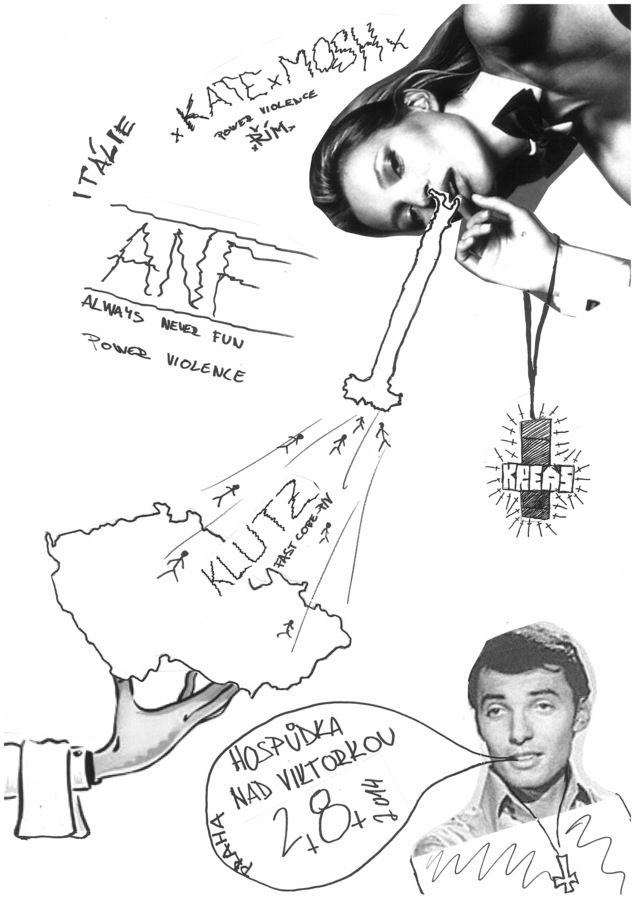 x KATE x MOSH x
POWER VIOLENCE
x ŘÍM x
ITÁLIE
ANF
ALWAYS NEVER FUN
POWER VIOLENCE
KREAS
KLUTZ
FAST CORE
HOSPŮDKA
NAD VIKTORKOU
2+8+
2014
PRAHA